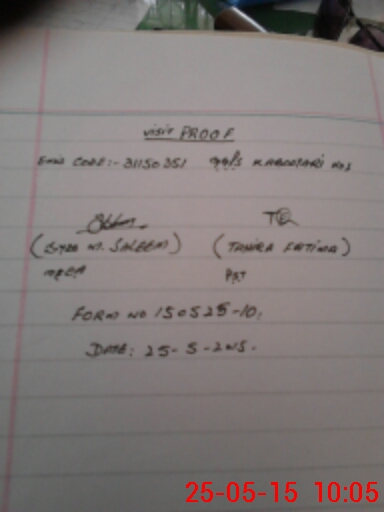 visit PROOF
EMIS CODE:- 31150351 GG/S KABOOTARI NO1
(SYED M. SALEEM) (TAHIRA FATIMA)
MEA PST
FORM NO 150525-10.
DATE: 25-5-2015.
25-05-15 10:05